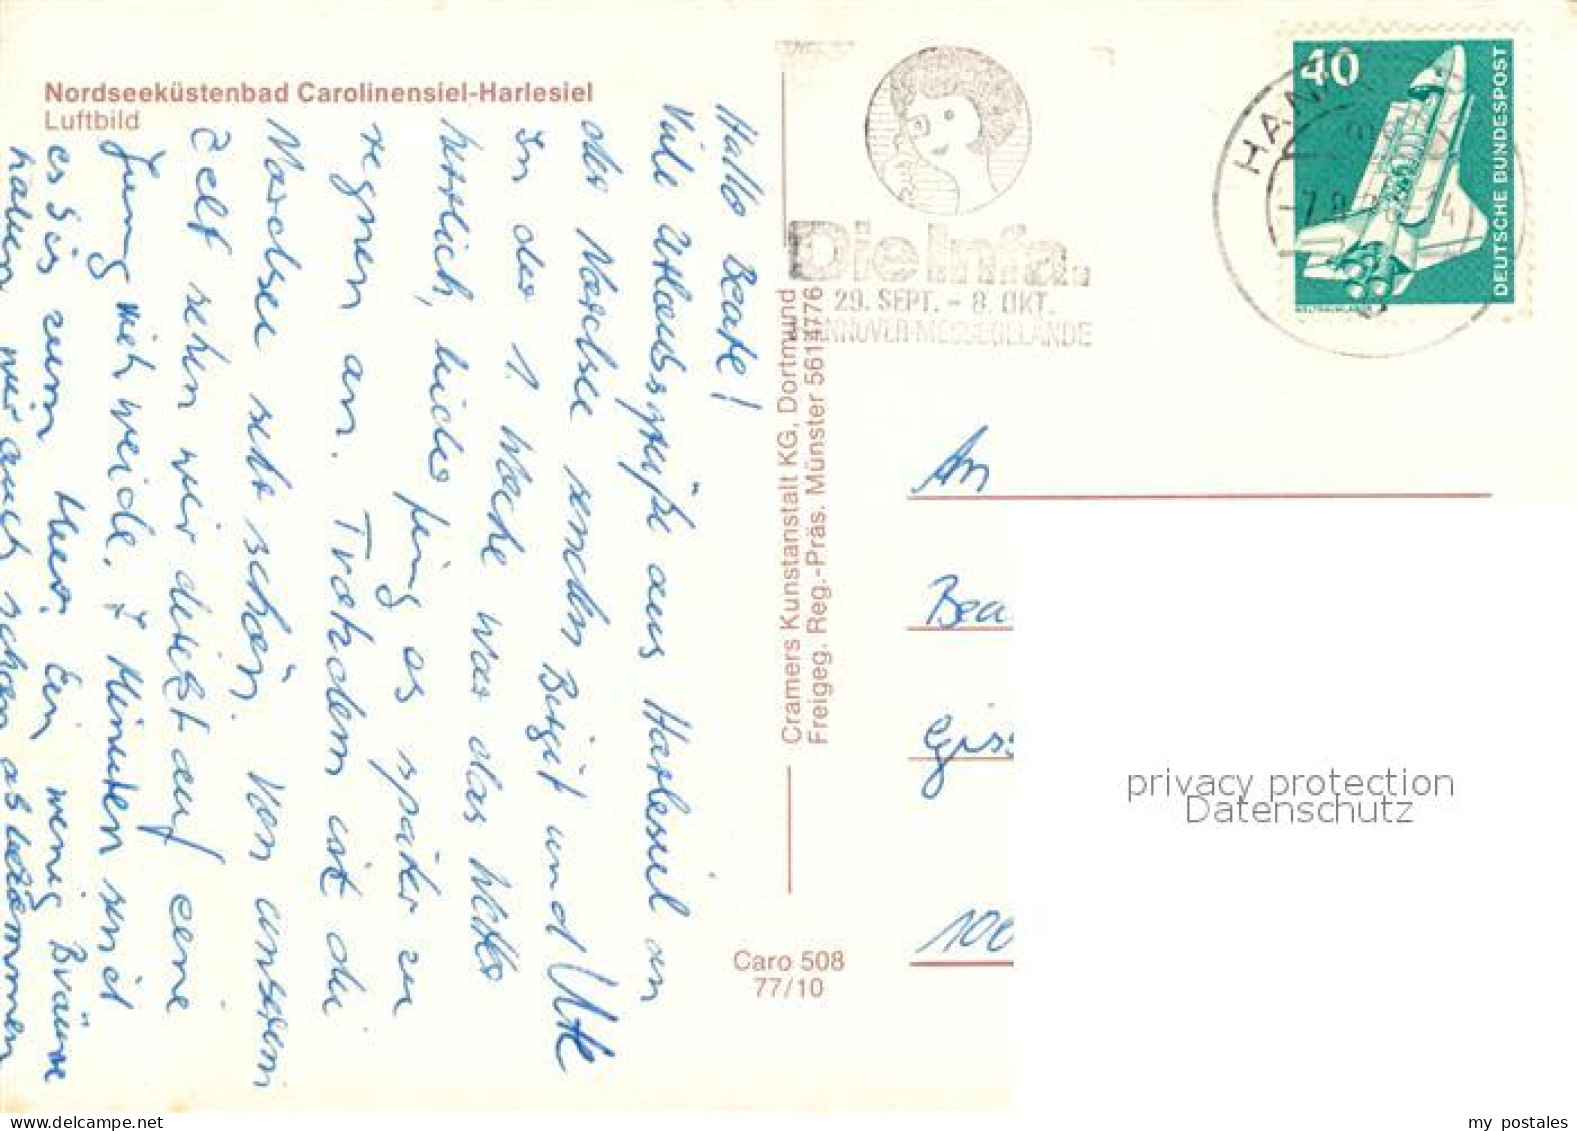 Nordseeküstenbad Carolinensiel-Harlesiel
Luftbild
Hallo Beate!
Viele Urlaubsgrüße aus Harlesiel an
der Nordsee senden Birgit und Ute
In der 1. Woche war das Wetter
herrlich, leider fing es später zu
regnen an. Trotzdem ist die
Nordsee sehr schön. Von unserem
Zelt sehen wir direkt auf eine
Jungviehweide. 7 Minuten sind
es bis zum Meer. Ein wenig Bräune
haben wir auch schon abbekommen
Cramers Kunstanstalt KG, Dortmund
Freigeg. Reg.-Präs. Münster 5614776
Caro 508
77/10
Die Infa.
29. SEPT. - 8. OKT.
HANNOVER-MESSEGELÄNDE
HAN
40
DEUTSCHE BUNDESPOST
An
Bea
Giss
100
privacy protection
Datenschutz
my postales